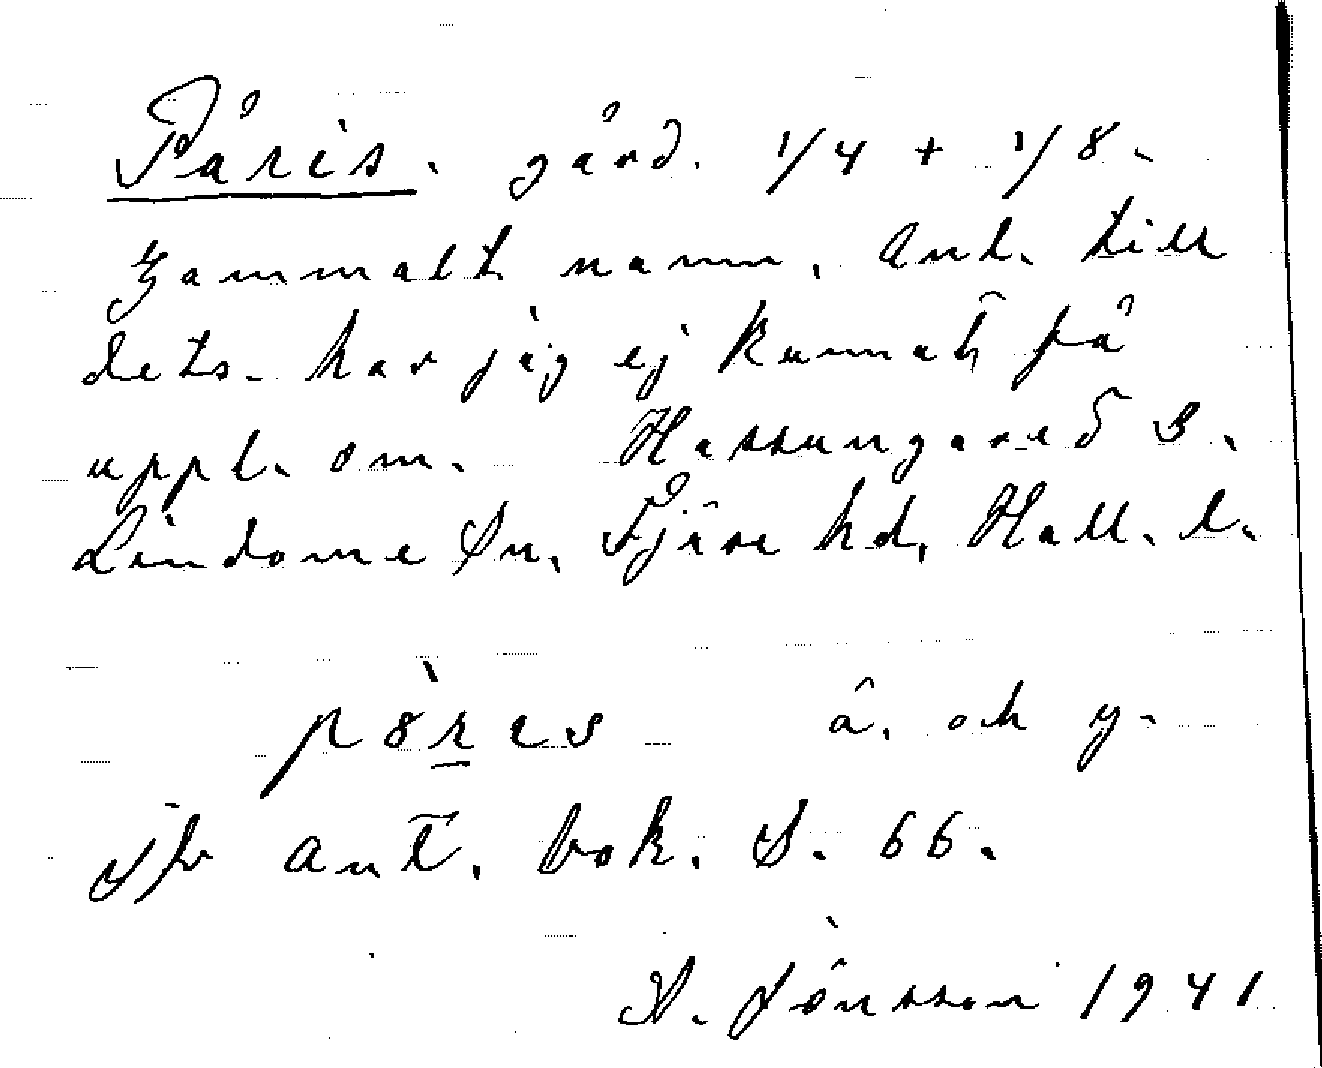 Påris. gård. 1/4 + 1/8.
Gammalt namn. Anl. till
dets. har jag ej kunnat få
uppl. om. Hassungared S.
Lindome Sn. Fjäre hd, Hall. l.
pöres å. och y.
Jfr Ant. bok. S. 66.
A. Jönsson 1941